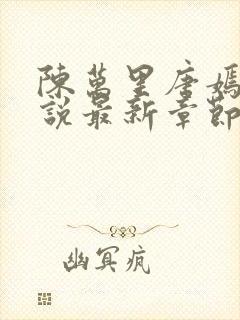 陳萬里唐嫣
說最新章節
幽冥瘋